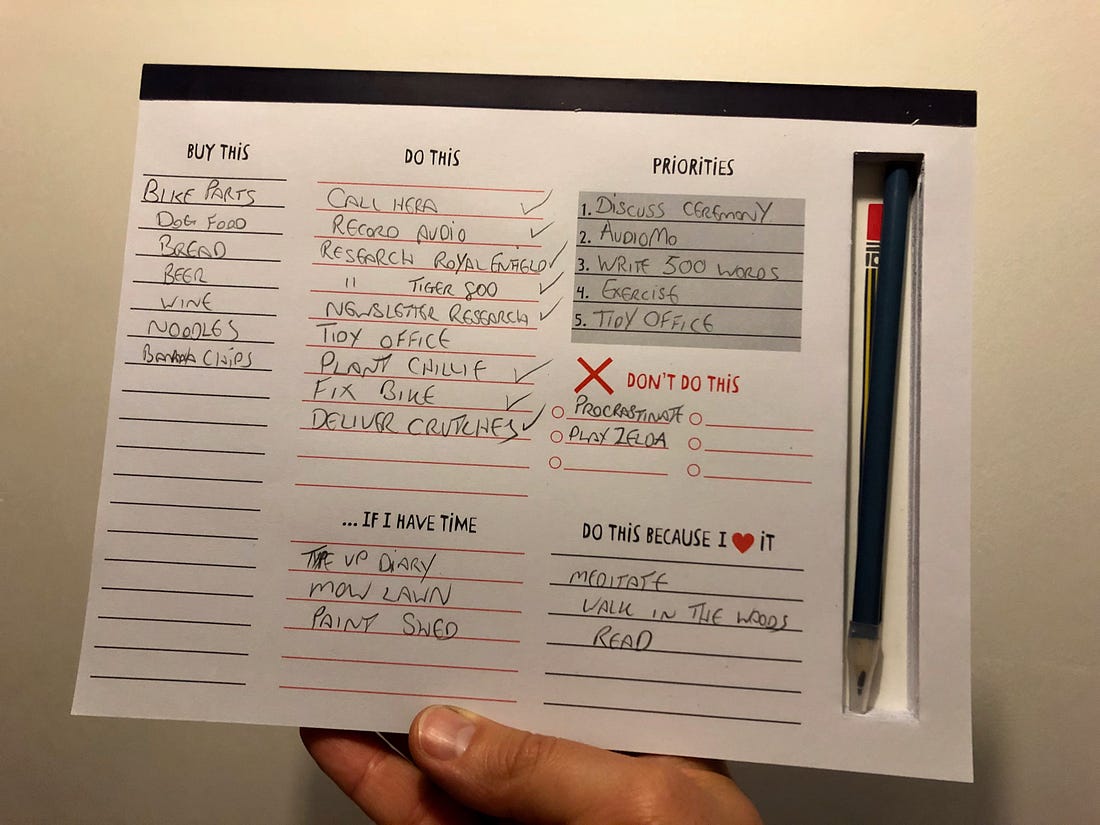 BUY THIS
BIKE PARTS
DOG FOOD
BREAD
BEER
WINE
NOODLES
BANANA CHIPS
DO THIS
CALL HERA ✓
RECORD AUDIO ✓
RESEARCH ROYAL ENFIELD ✓
" TIGER 800 ✓
NEWSLETTER RESEARCH ✓
TIDY OFFICE
PLANT CHILLIE ✓
FIX BIKE ✓
DELIVER CRUTCHES ✓
... IF I HAVE TIME
TYPE UP DIARY
MOW LAWN
PAINT SHED
PRIORITIES
1. DISCUSS CEREMONY
2. AUDIOMO
3. WRITE 500 WORDS
4. EXERCISE
5. TIDY OFFICE
DON'T DO THIS
PROCRASTINATE
PLAY ZELDA
DO THIS BECAUSE I ♥ IT
MEDITATE
WALK IN THE WOODS
READ